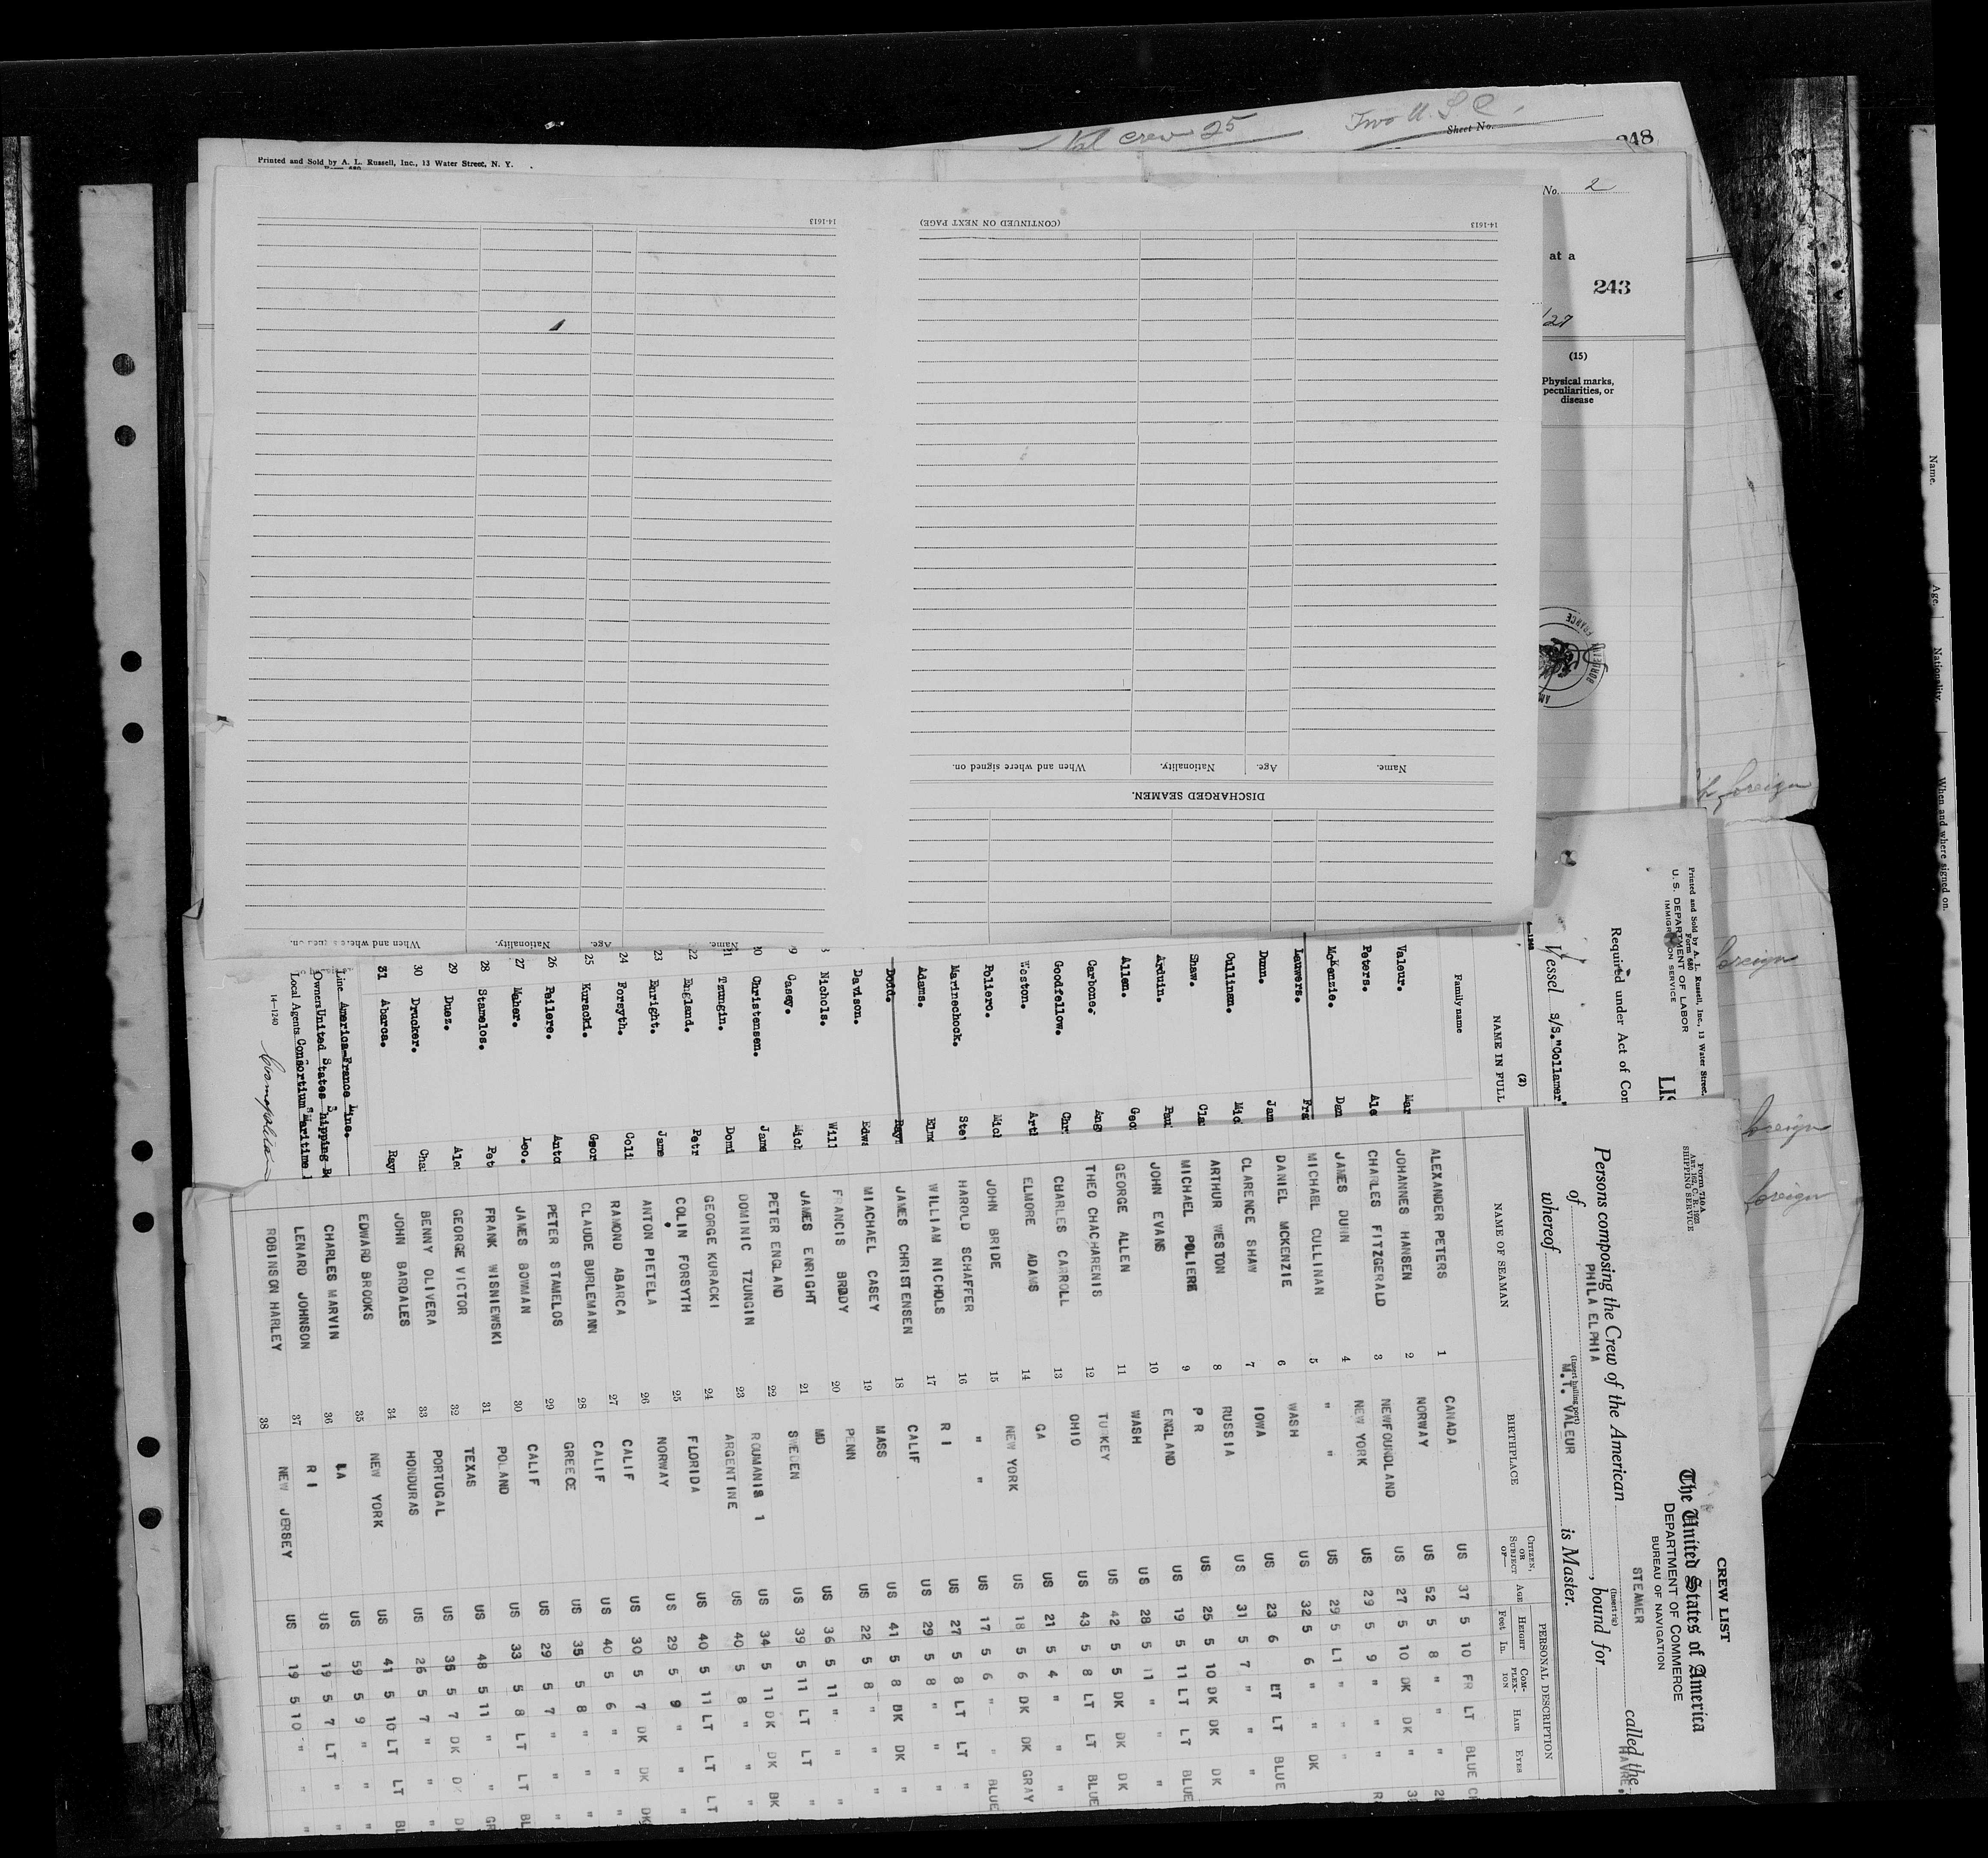 Tot crew 25
Two U.S.C.
Sheet No.
248
Printed and Sold by A. L. Russell, Inc., 13 Water Street, N. Y.
No. 2
at a
243
/27
(15)
Physical marks,
peculiarities, or
disease
14-1613
(CONTINUED ON NEXT PAGE)
14-1613
When and where signed on.
Nationality.
Age.
Name.
DISCHARGED SEAMEN.
Name.
Age.
Nationality.
When and where signed on.
Name.
Age.
Nationality.
When and where signed on.
foreign
foreign
foreign
foreign
Printed and Sold by A. L. Russell, Inc., 13 Water Street
Form 680
U. S. DEPARTMENT OF LABOR
IMMIGRATION SERVICE
LIS
Required under Act of Con
Vessel S/S."Collamer"
(2)
NAME IN FULL
Family name
Valeur. Mar
Peters. Ale
McKenzie. Dan
Lauwers. Fra
Dunn. Jam
Cullinan. Mic
Shaw. Cla
Arduin. Pau
Allen. Geo
Carbone. Ang
Goodfellow. Chr
Weston. Art
Poliero. Mich
Marinechock. Ste
Adams. Elm
Dodd. Ray
Davison. Edw
Nichols. Will
9 Casey. Mich
Christensen. Jame
Tzungin. Domi
22 England. Petr
23 Enright. Jame
24 Forsyth. Coli
25 Kuracki. Geor
26 Pailere. Anto
27 Maher. Leo.
28 Stamelos. Pet
29 Duez. Ale
30 Drucker. Cha
31 Abarca. Ray
Line America-France Line.
Owners United States Shipping B
Local Agents Consortium Maritime
14-1240
Cosmopolitan
Form 710-A
ART. 162, C. R. 1923
SHIPPING SERVICE
CREW LIST
The United States of America
DEPARTMENT OF COMMERCE
BUREAU OF NAVIGATION
STEAMER
(Insert rig)
Persons composing the Crew of the American called the
of PHILA ELPHIA, bound for HAVRE,
(Insert hailing port)
whereof M.T. VALEUR is Master.
NAME OF SEAMAN
BIRTHPLACE
CITIZEN, OR SUBJECT OF—
PERSONAL DESCRIPTION
AGE
HEIGHT
Feet In.
COMPLEXION
HAIR
EYES
ALEXANDER PETERS 1 CANADA US 37 5 10 FR LT BLUE
JOHANNES HANSEN 2 NORWAY US 52 5 8 " " "
CHARLES FITZGERALD 3 NEWFOUNDLAND US 27 5 10 DK DK "
JAMES DUNN 4 NEW YORK US 29 5 9 " " "
MICHAEL CULLINAN 5 " " US 29 5 L1 " " "
DANIEL MCKENZIE 6 WASH US 32 5 6 " " DK
CLARENCE SHAW 7 IOWA US 23 6 LT LT BLUE
ARTHUR WESTON 8 RUSSIA US 31 5 7 " " "
MICHAEL POLIERE 9 P R US 25 5 10 DK DK DK
JOHN EVANS 10 ENGLAND US 19 5 11 LT LT BLUE
GEORGE ALLEN 11 WASH US 28 5 11 " " "
THEO CHACHARENIS 12 TURKEY US 42 5 5 DK DK DK
CHARLES CARROLL 13 OHIO US 43 5 8 LT LT BLUE
ELMORE ADAMS 14 GA US 21 5 4 " " "
JOHN BRIDE 15 NEW YORK US 18 5 6 DK DK GRAY
HAROLD SCHAFFER 16 " " US 17 5 6 " " BLUE
WILLIAM NICHOLS 17 R I US 27 5 8 LT LT "
JAMES CHRISTENSEN 18 CALIF US 29 5 8 " " "
MIACHAEL CASEY 19 MASS US 41 5 8 DK DK "
FRANCIS BRODY 20 PENN US 22 5 8 " " "
JAMES ENRIGHT 21 MD US 36 5 11 " " "
PETER ENGLAND 22 SWEDEN US 39 5 11 LT LT "
DOMINIC TZUNGIN 23 ROUMANIA 1 US 34 5 11 DK DK DK
GEORGE KURACKI 24 ARGENTINE US 40 5 8 " " "
COLIN FORSYTH 25 FLORIDA US 40 5 11 LT LT LT
ANTON PIETELA 26 NORWAY US 29 5 9 " " "
RAMOND ABARCA 27 CALIF US 30 5 7 DK DK DK
CLAUDE BURLEMANN 28 CALIF US 40 5 6 " " "
PETER STAMELOS 29 GREECE US 35 5 8 " " "
JAMES BOWMAN 30 CALIF US 29 5 7 " " "
FRANK WISNIEWSKI 31 POLAND US 33 5 8 LT LT BL
GEORGE VICTOR 32 TEXAS US 48 5 11 " " GR
BENNY OLIVERA 33 PORTUGAL US 35 5 7 DK DK DK
JOHN BARDALES 34 HONDURAS US 26 5 7 " " "
EDWARD BROOKS 35 NEW YORK US 41 5 10 LT LT BL
CHARLES MARVIN 36 LA US 59 5 9 " " "
LENARD JOHNSON 37 R I US 19 5 7 LT " "
ROBINSON HARLEY 38 NEW JERSEY US 19 5 10 " " "